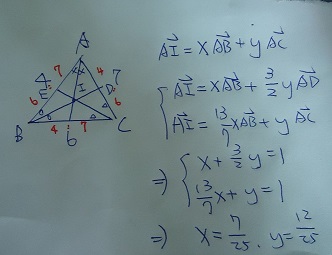 A
4 7 4 7
E I D
6 6
B 4 7 C
6
$\vec{AI} = x\vec{AB} + y\vec{AC}$
$\vec{AI} = x\vec{AB} + \frac{3}{2}y\vec{AD}$
$\vec{AI} = \frac{13}{7}x\vec{AB} + y\vec{AC}$
$\Rightarrow x + \frac{3}{2}y = 1$
$\frac{13}{7}x + y = 1$
$\Rightarrow x = \frac{7}{25}, y = \frac{12}{25}$